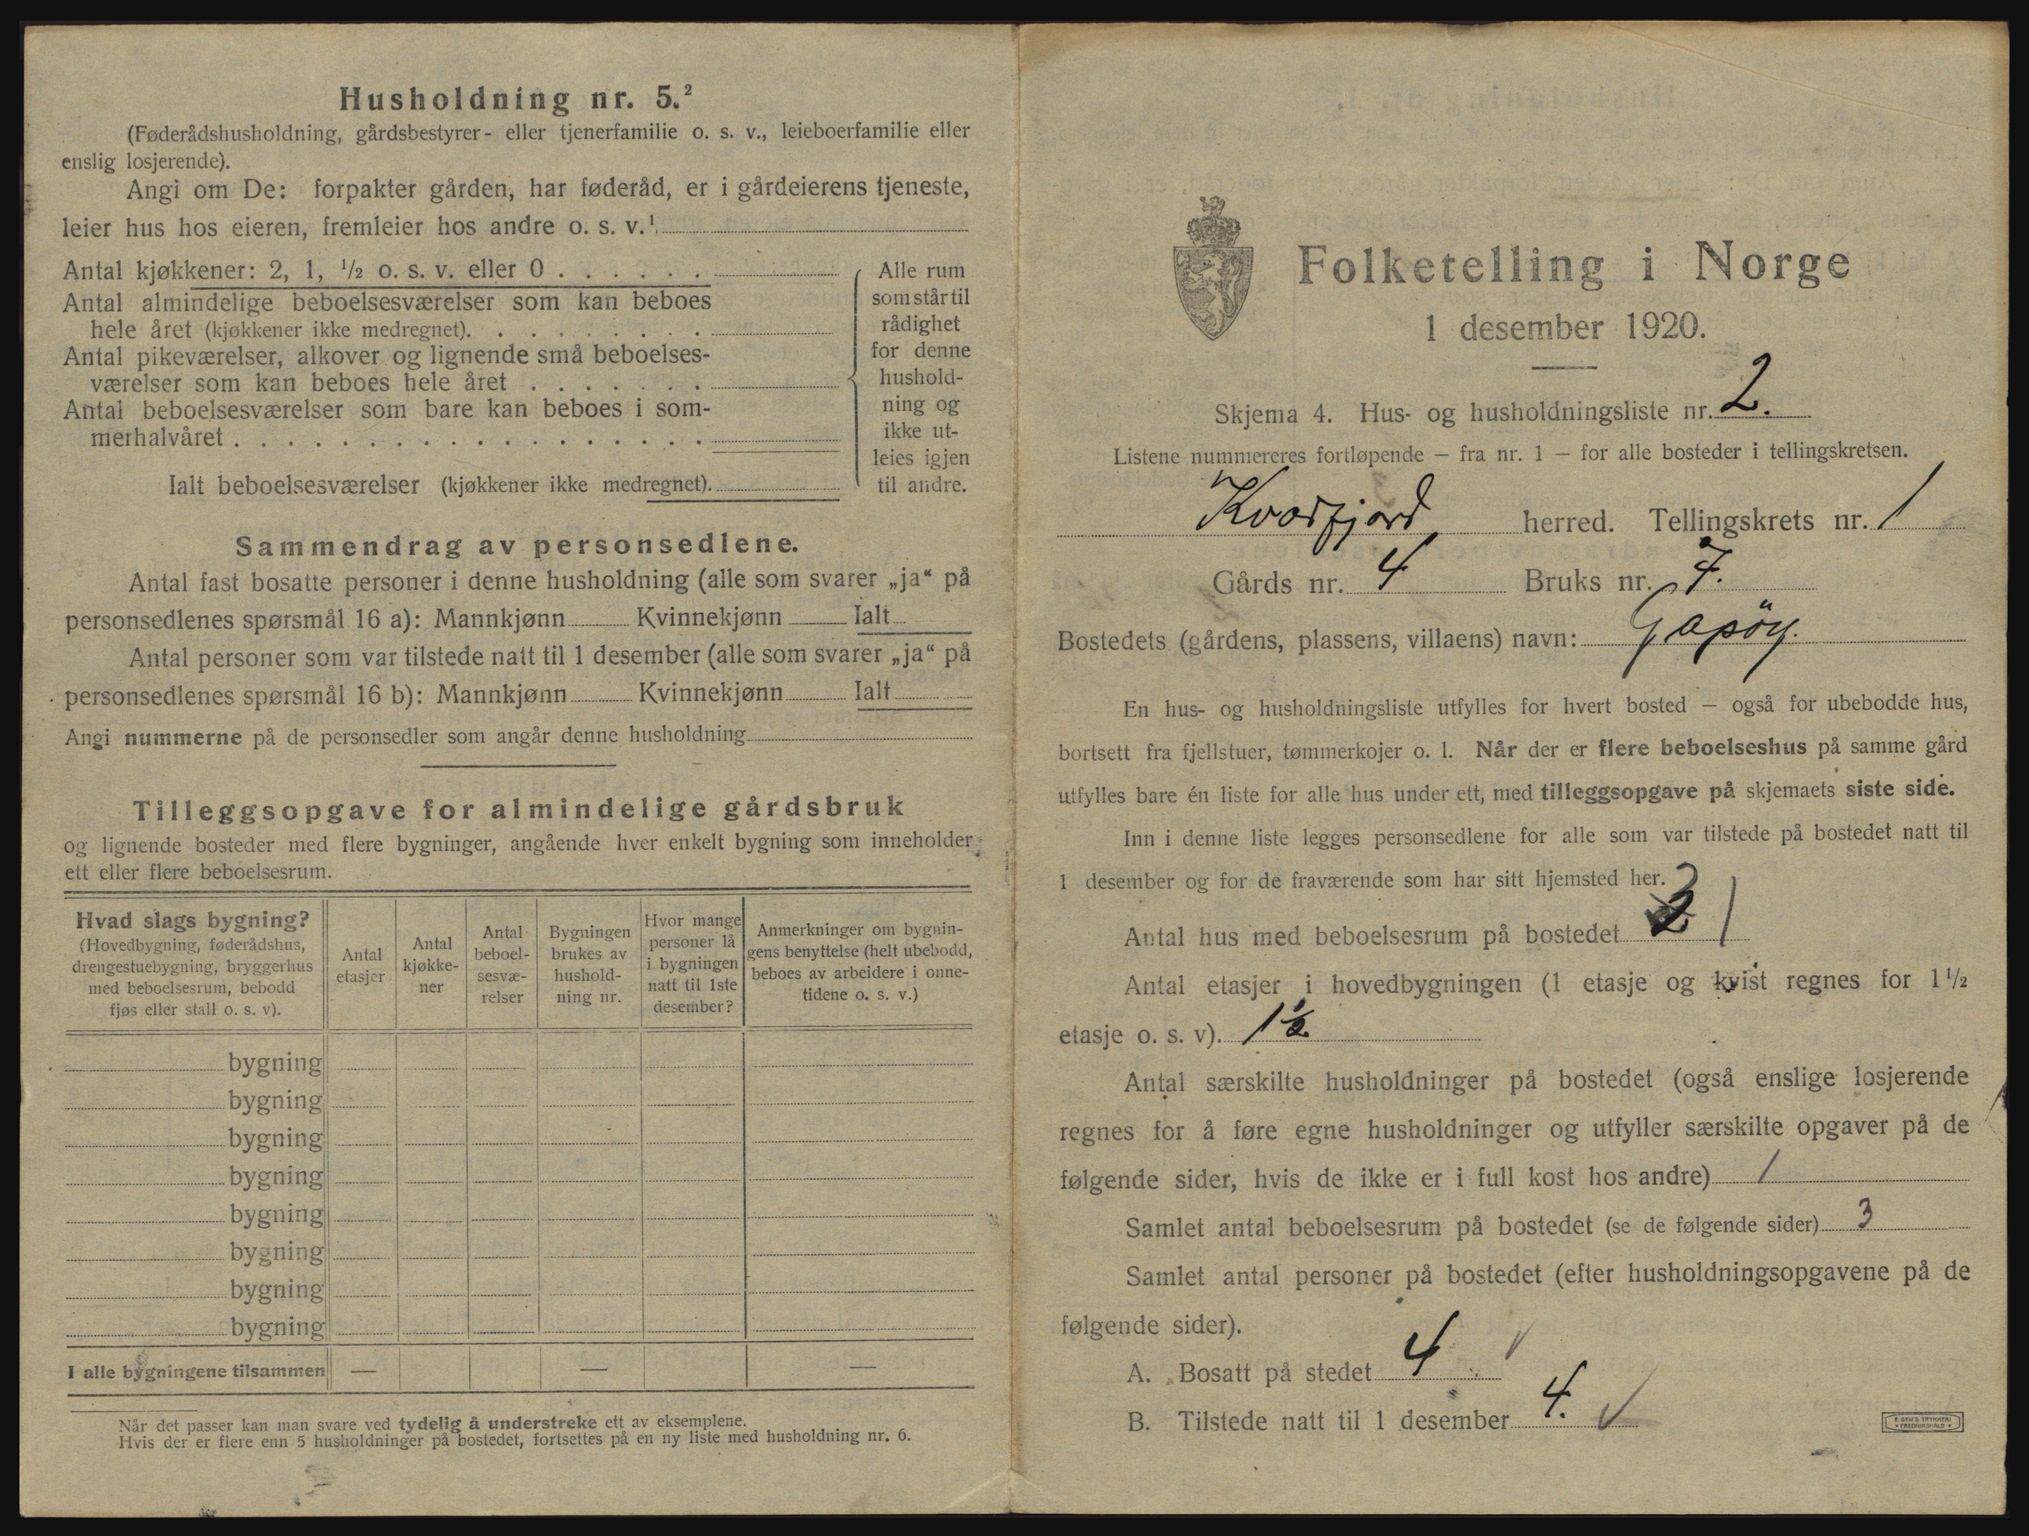 Husholdning nr. 5.²
(Føderådshusholdning, gårdsbestyrer- eller tjenerfamilie o. s. v., leieboerfamilie eller
enslig losjerende).
Angi om De: forpakter gården, har føderåd, er i gårdeierens tjeneste,
leier hus hos eieren, fremleier hos andre o. s. v.¹
Antal kjøkkener: 2, 1, ½ o. s. v. eller 0 . . . . . .
Antal almindelige beboelsesværelser som kan beboes
hele året (kjøkkener ikke medregnet). . . . . . . . .
Antal pikeværelser, alkover og lignende små beboelses-
værelser som kan beboes hele året . . . . . . .
Antal beboelsesværelser som bare kan beboes i som-
merhalvåret . . . . . . . . . . . . . . . . . .
Ialt beboelsesværelser (kjøkkener ikke medregnet).
Alle rum
som står til
rådighet
for denne
hushold-
ning og
ikke ut-
leies igjen
til andre.
Sammendrag av personsedlene.
Antal fast bosatte personer i denne husholdning (alle som svarer „ja“ på
personsedlenes spørsmål 16 a): Mannkjønn Kvinnekjønn Ialt
Antal personer som var tilstede natt til 1 desember (alle som svarer „ja“ på
personsedlenes spørsmål 16 b): Mannkjønn Kvinnekjønn Ialt
Angi nummerne på de personsedler som angår denne husholdning
Tilleggsopgave for almindelige gårdsbruk
og lignende bosteder med flere bygninger, angående hver enkelt bygning som inneholder
ett eller flere beboelsesrum.
Hvad slags bygning?
(Hovedbygning, føderådshus,
drengestuebygning, bryggerhus
med beboelsesrum, bebodd
fjøs eller stall o. s. v).
Antal
etasjer
Antal
kjøkke-
ner
Antal
beboel-
sesvæ-
relser
Bygningen
brukes av
hushold-
ning nr.
Hvor mange
personer lå
i bygningen
natt til 1ste
desember?
Anmerkninger om bygnin-
gens benyttelse (helt ubebodd,
beboes av arbeidere i onne-
tidene o. s. v.)
bygning
bygning
bygning
bygning
bygning
bygning
bygning
bygning
I alle bygningene tilsammen — — —
Når det passer kan man svare ved tydelig å understreke ett av eksemplene.
Hvis der er flere enn 5 husholdninger på bostedet, fortsettes på en ny liste med husholdning nr. 6.
Folketelling i Norge
1 desember 1920.
Skjema 4. Hus- og husholdningsliste nr. 2.
Listene nummereres fortløpende — fra nr. 1 — for alle bosteder i tellingskretsen.
Kvæfjord herred. Tellingskrets nr. 1
Gårds nr. 4 Bruks nr. 7.
Bostedets (gårdens, plassens, villaens) navn: Gapöy.
En hus- og husholdningsliste utfylles for hvert bosted — også for ubebodde hus,
bortsett fra fjellstuer, tømmerkojer o. l. Når der er flere beboelseshus på samme gård
utfylles bare én liste for alle hus under ett, med tilleggsopgave på skjemaets siste side.
Inn i denne liste legges personsedlene for alle som var tilstede på bostedet natt til
1 desember og for de fraværende som har sitt hjemsted her.
Antal hus med beboelsesrum på bostedet 1
Antal etasjer i hovedbygningen (1 etasje og kvist regnes for 1½
etasje o. s. v). 1½
Antal særskilte husholdninger på bostedet (også enslige losjerende
regnes for å føre egne husholdninger og utfyller særskilte opgaver på de
følgende sider, hvis de ikke er i full kost hos andre) 1
Samlet antal beboelsesrum på bostedet (se de følgende sider) 3
Samlet antal personer på bostedet (efter husholdningsopgavene på de
følgende sider).
A. Bosatt på stedet 4
B. Tilstede natt til 1 desember 4.